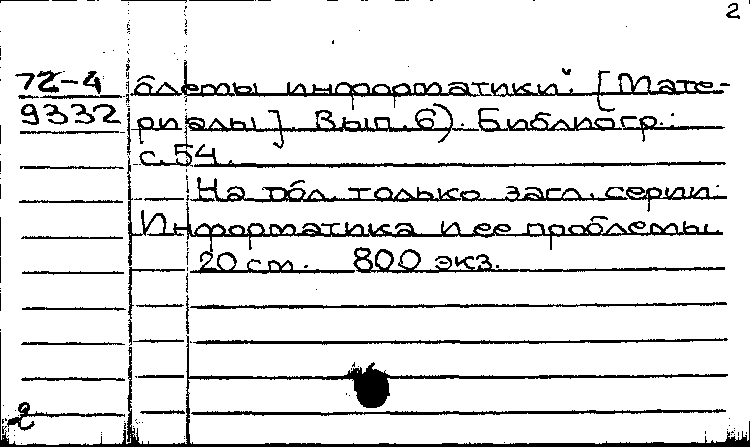 2
72-4 блемы информатики". [Мате-
9332 риалы]. Вып. 6). Библиогр.:
с. 54.
На обл. только загл. серии:
Информатика и ее проблемы
20 см. 800 экз.